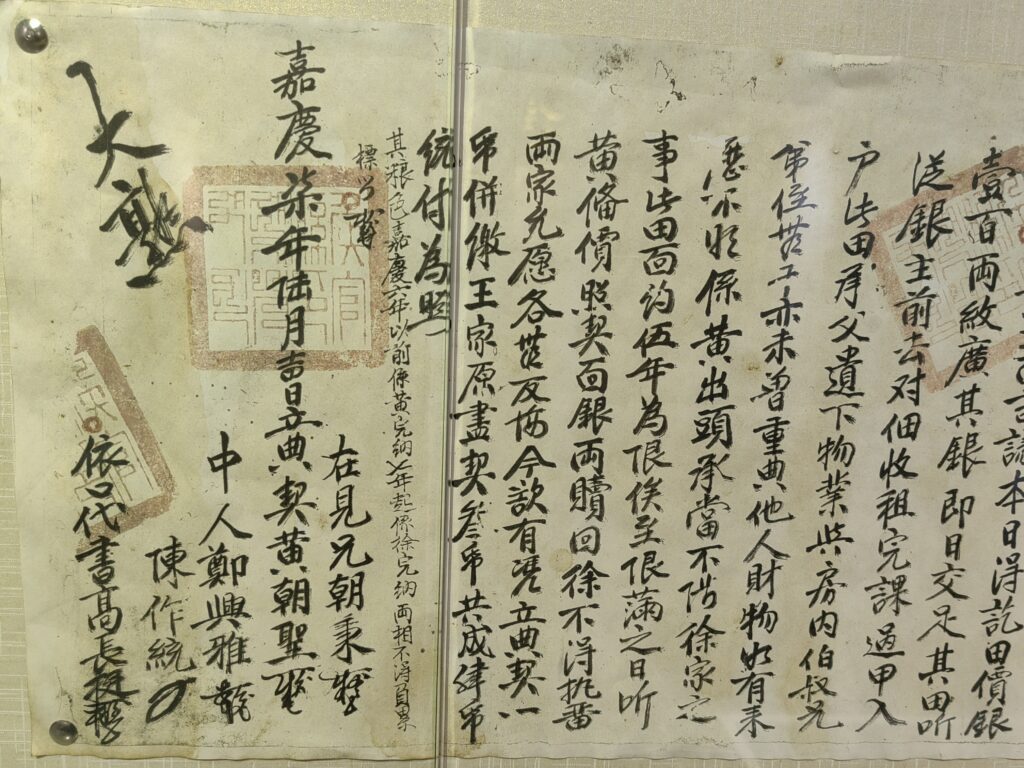 壹百両紋廣其銀即日交足其田听
従銀主前去对佃收租完課過甲入
户此田承父遺下物業與房内伯叔兄
弟侄等亦未曾重典他人財物如有来
歷不明係黄出頭承當不渉徐家之
事此田面約伍年為限俟至限滿之日听
黄備價照契面銀両贖回徐不得執畨
両家允愿各無反悔今欲有凴立典契一
帋併繳王家原盡契叁帋共成肆帋
統付為照
其粮色嘉慶六年以前係黄完納七年起係徐完納両相不得負累
標
在見兄朝秉
嘉慶柒年陆月吉日立典契黄朝聖
中人鄭興雅
陳作統
依口代書高長
大